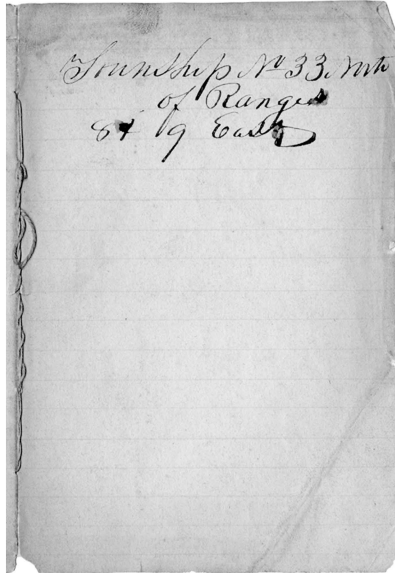 Township No 33, North
of Ranges
8 & 9 East